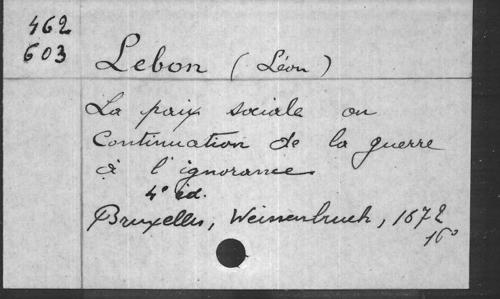 462
603
Lebon (Léon)
La paix sociale ou
Continuation de la guerre
à l'ignorance
4e éd.
Bruxelles, Weissenbruch, 1872
16°